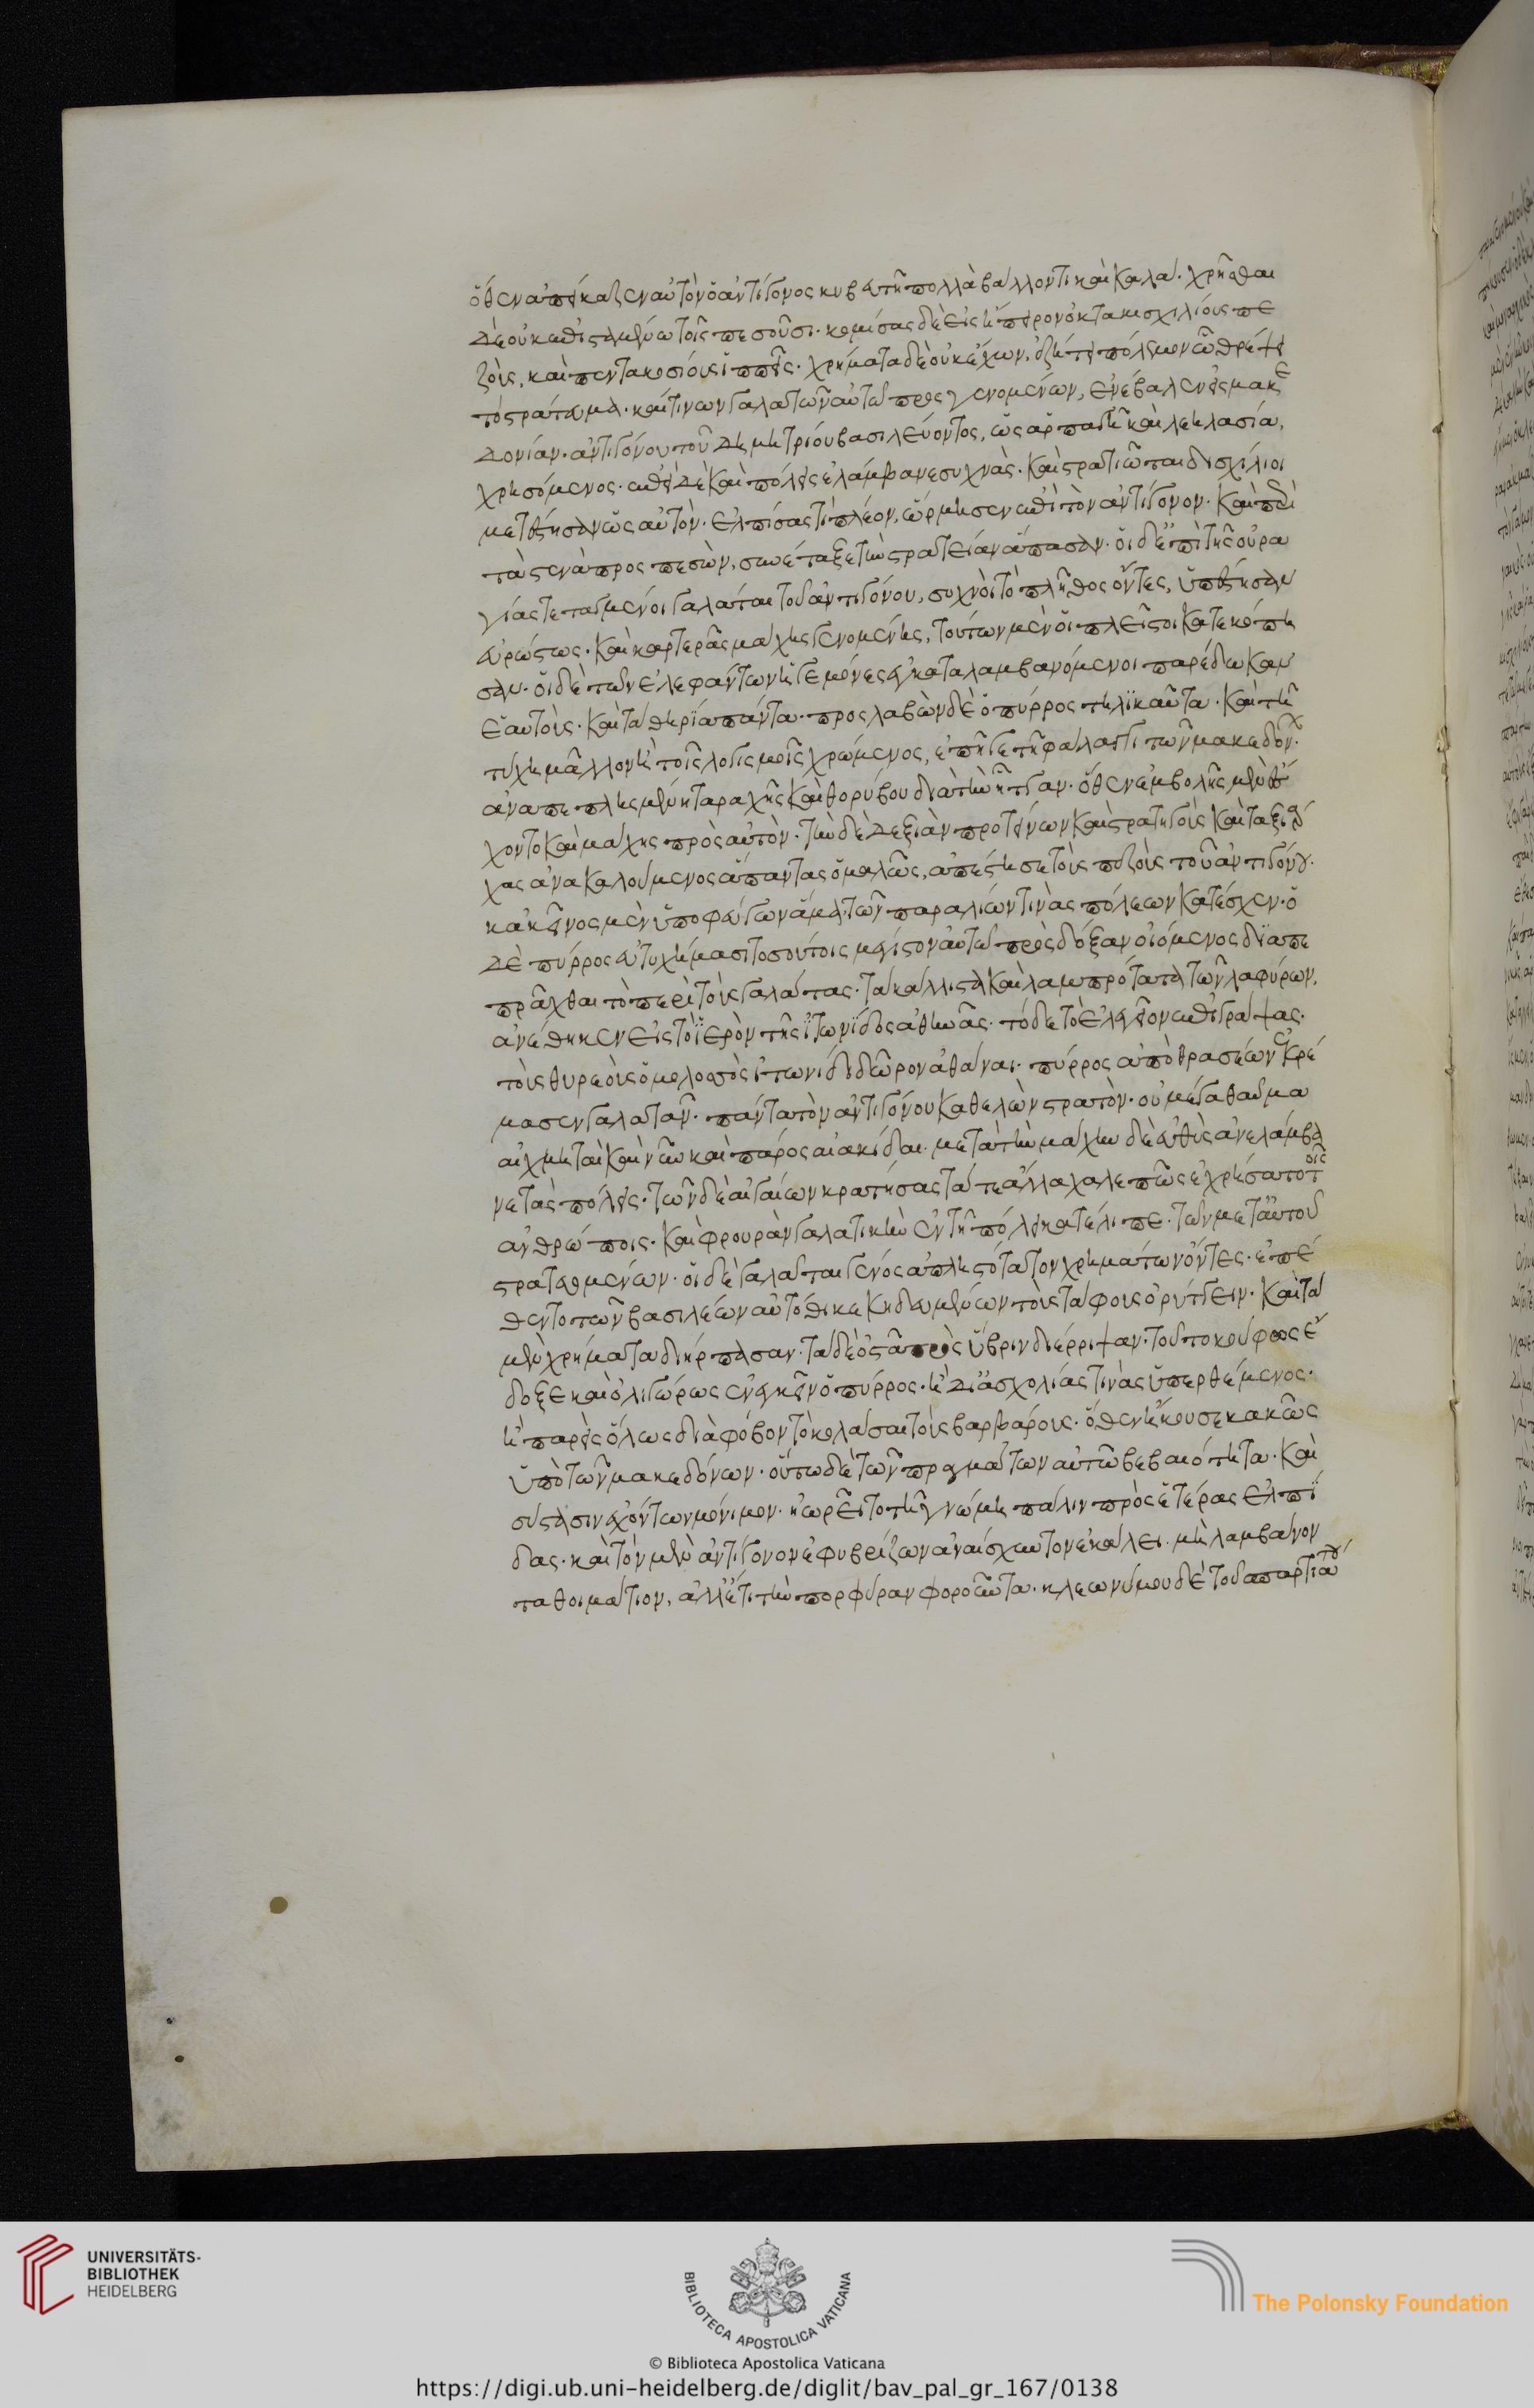 ὅθεν ἀπείκαζεν αὐτὸν ὁ ἀντίγονος κυβευτῆ πολλὰ βάλλοντι καὶ καλά. χρῆσθαι
δὲ οὐκ ἐπισταμένω τοῖς πεσοῦσι. κομίσας δὲ εἰς ἤπειρον ὀκτακισχιλίους πε
ζοὺς, καὶ πεντακοσίους ἱππεῖς. χρήματα δὲ οὐκ ἔχων, ἐζήτει πόλεμον ὧ θρέψει
τὸ στράτευμα. καί τινων γαλατῶν αὐτῶ προσγενομένων, ἐνέβαλεν εἰς μακε
δονίαν. ἀντιγόνου τοῦ δημητρίου βασιλεύοντος, ὡς ἁρπαγῆ καὶ λεηλασία,
χρησόμενος. ἐπεὶ δὲ καὶ πόλεις ἐλάμβανε συχνὰς. καὶ στρατιῶται δισχίλιοι
μετέστησαν ὡς αὐτὸν. ἐλπίσας τὶ πλέον, ὥρμησεν ἐπὶ τὸν ἀντίγονον. καὶ περὶ
τὰ στενὰ προσπεσὼν, συνετάραξε τὴν στρατείαν ἅπασαν. οἱ δ' ἐπὶ τῆς οὐρα
γίας τεταγμένοι γαλάται τοῦ ἀντιγόνου, συχνοὶ τὸ πλῆθος ὄντες, ὑπέστησαν
εὐρώστως. καὶ καρτερᾶς μάχης γενομένης, τούτων μὲν οἱ πλεῖστοι κατεκόπη
σαν. οἱ δὲ τῶν ἐλεφάντων ἡγεμόνες ἐγκαταλαμβανόμενοι παρέδωκαν
ἑαυτοὺς. καὶ τὰ θηρία πάντα. προσλαβὼν δὲ ὁ πύρρος τηλικαῦτα. καὶ τῆ
τύχη μᾶλλον ἢ τοῖς λογισμοῖς χρώμενος, ἐπῆγε τῆ φάλαγγι τῶν μακεδόνων.
ἀναπεπλησμένη ταραχῆς καὶ θορύβου διὰ τὴν ἧτταν. ὅθεν ἐμβολῆς μὲν ἔσ
χοντο καὶ μάχης πρὸς αὐτὸν. τὴν δὲ δεξιὰν προτείνων καὶ στρατηγοὺς καὶ ταξιάρ
χας ἀνακαλούμενος ἅπαντας ὁμαλῶς, ἀπέστησε τοὺς πεζοὺς τοῦ ἀντιγόνου.
κἀκεῖνος μὲν ὑποφεύγων ἅμα τῶν παραλίων τινὰς πόλεων κατέσχεν. ὁ
δὲ πύρρος εὐτυχήμασι τοσούτοις μέγιστον αὐτῶ πρὸς δόξαν οἰόμενος διαπε
πρᾶχθαι τὸ περὶ τοὺς γαλάτας. τὰ κάλλιστα καὶ λαμπρότατα τῶν λαφύρων,
ἀνέθηκεν εἰς τὸ ἱερὸν τῆς ἰτωνίδος ἀθηνᾶς. τόδε τὸ ἐλεγεῖον ἐπιγράψας.
τοὺς θυρεοὺς ὁ μολοσσὸς ἰτωνίδι δῶρον ἀθάναι. πύρρος ἀπὸ θρασέων ἐκρέ
μασεν γαλατᾶν. πάντα τὸν ἀντιγόνου καθελὼν στρατὸν. οὐ μέγα θαῦμα
αἰχμηταὶ καὶ νῦν καὶ πάρος αἰακίδαι. μετὰ τὴν μάχην δὲ εὐθὺς ἀνελάμβα
νε τὰς πόλεις. τῶν δὲ αἰγαίων κρατήσας τά τε ἄλλα χαλεπῶς ἐχρήσατο τοῖς
ἀνθρώποις. καὶ φρουρὰν γαλατικὴν ἐν τῆ πόλει κατέλιπε. τῶν μετ' αὐτοῦ
στρατευομένων. οἱ δὲ γαλάται γένος ἀπληστότατον χρημάτων ὄντες. ἐπέ
θεντο τῶν βασιλέων αὐτόθι κεκηδευμένων τοὺς τάφους ὀρύττειν. καὶ τὰ
μὲν χρήματα διήρπασαν. τὰ δὲ ὀστᾶ πρὸς ὕβριν διέρριψαν. τοῦτο κούφως ἔ
δοξε καὶ ὀλιγώρως ἐνεγκεῖν ὁ πύρρος. ἢ δι' ἀσχολίας τινὰς ὑπερθέμενος.
ἢ παρεὶς ὅλως διὰ φόβον τὸ κολάσαι τοὺς βαρβάρους. ὅθεν ἤκουσε κακῶς
ὑπὸ τῶν μακεδόνων. οὔπω δὲ τῶν πραγμάτων αὐτῶ βεβαιότητα. καὶ
σύστασιν ἐχόντων μόνιμον. ἠωρεῖτο τῆ γνώμη πάλιν πρὸς ἑτέρας ἐλπί
δας. καὶ τὸν μὲν ἀντίγονον ἐφυβρίζων ἀναίσχυντον ἐκάλει. μὴ λαμβάνον
τα θοιμάτιον, ἀλλ' ἔτι τὴν πορφύραν φοροῦντα. κλεωνύμου δὲ τοῦ σπαρτιάτου
UNIVERSITÄTS-
BIBLIOTHEK
HEIDELBERG
BIBLIOTECA APOSTOLICA VATICANA
The Polonsky Foundation
© Biblioteca Apostolica Vaticana
https://digi.ub.uni-heidelberg.de/diglit/bav_pal_gr_167/0138